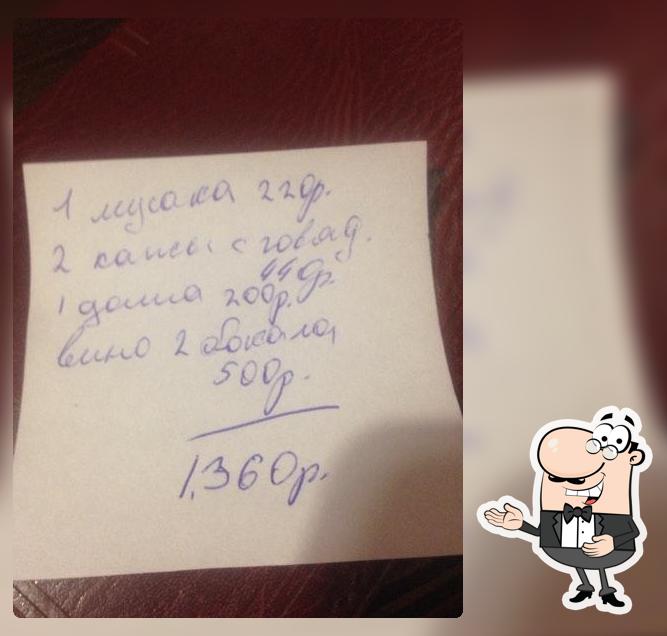 1 мусака 220р.
2 капсы с говяд.
440р.
1 долма 200р.
вино 2 бокала
500р.
1,360р.